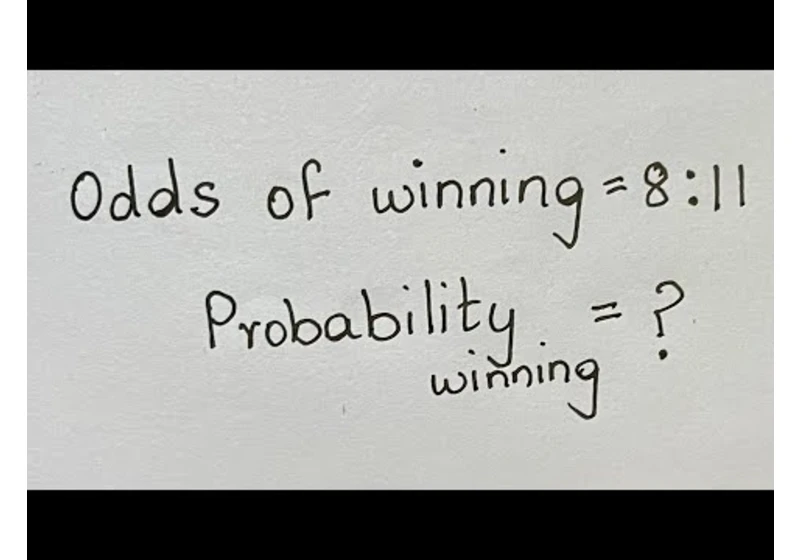 Odds of winning = 8:11
Probability = ?
winning